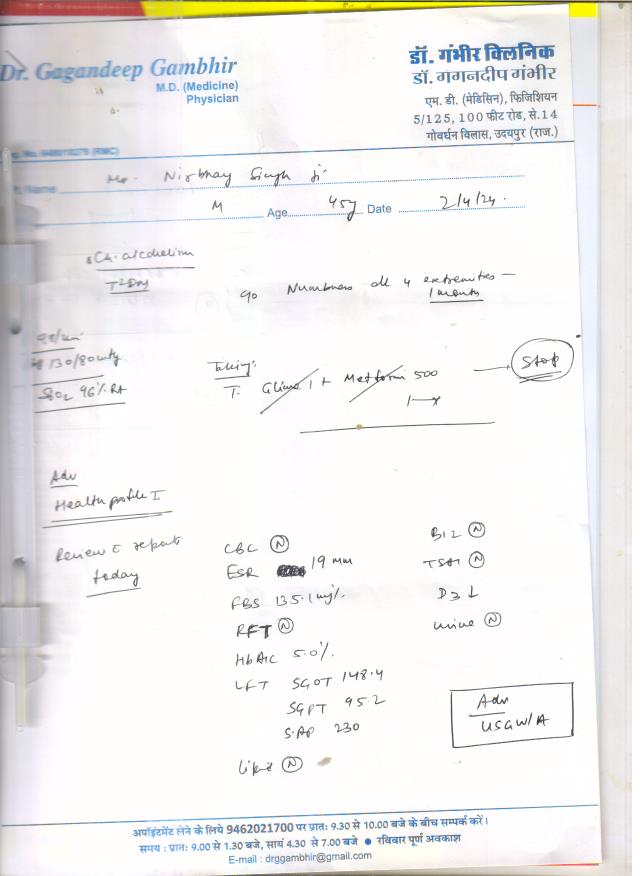 Dr. Gagandeep Gambhir
M.D. (Medicine)
Physician
डॉ. गंभीर क्लिनिक
डॉ. गगनदीप गंभीर
एम. डी. (मेडिसिन), फिजिशियन
5/125, 100 फीट रोड, से.14
गोवर्धन विलास, उदयपुर (राज.)
Name Mr. Nirbhay Singh Ji
M Age 45y Date 2/4/24.
Ch. alcoholism
T2DM
c/o Numbness all 4 extremities —
1 month
98/min
130/80 mmHg
SpO2 96% RA
Taking:
T. Glime 1 + Metformin 500 → Stop
Adv
Health profile I
Review c reports
today
CBC (N)
ESR 19 mm
FBS 135.1 mg%
RFT (N)
HbA1C 5.0%
LFT SGOT 148.4
SGPT 95.2
S.AP 230
Lipid (N)
B12 (N)
TSH (N)
D3 ↓
urine (N)
Adv
USG W/A
अपॉइंटमेंट लेने के लिये 9462021700 पर प्रातः 9.30 से 10.00 बजे के बीच सम्पर्क करें।
समय : प्रातः 9.00 से 1.30 बजे, सायं 4.30 से 7.00 बजे ● रविवार पूर्ण अवकाश
E-mail : drggambhir@gmail.com